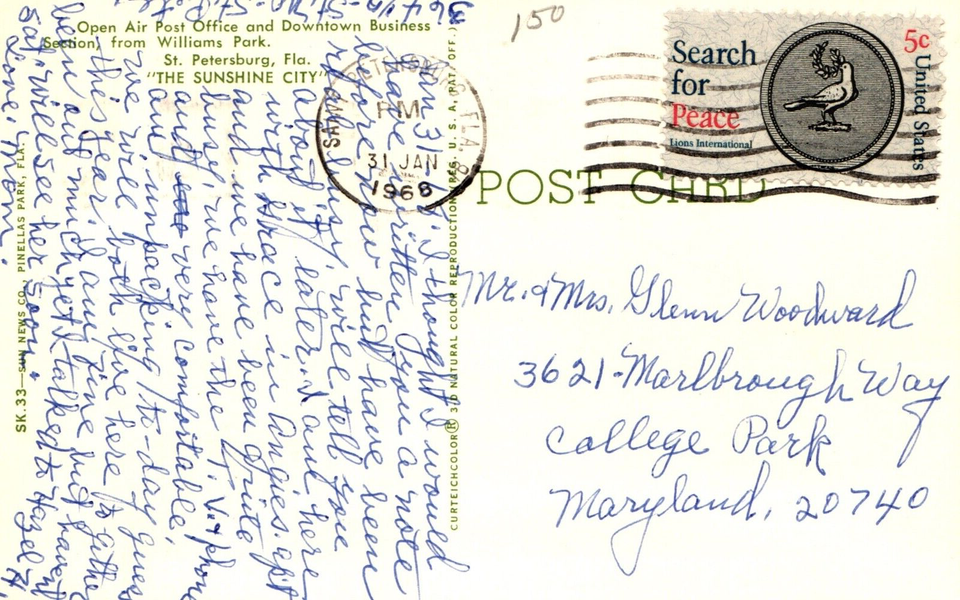 Open Air Post Office and Downtown Business
Section, from Williams Park.
St. Petersburg, Fla.
"THE SUNSHINE CITY"
150
PM
31 JAN
1968
Search
for
Peace
Lions International
5c
United States
POST CARD
Mr. & Mrs. Glenn Woodward
3621-Marlbrough Way
College Park
Maryland, 20740
Jan 31 I thought I would
have written you a note
before now but have been
busy, will tell you
about it later. I am here
with Grace in Angies apt
and we have been quite
busy, we have the T.V. & phone
and very comfortable,
am unpacking to-day, guess
we will both live here to gether
this year, I am fine but haven't
been out much yet, talked to Hazel H.
Sat, will see her soon.
Love,
SK.33—SUN NEWS CO., PINELLAS PARK, FLA.
CURTEICHCOLOR® 3D NATURAL COLOR REPRODUCTION (REG. U. S. A. PAT. OFF.)